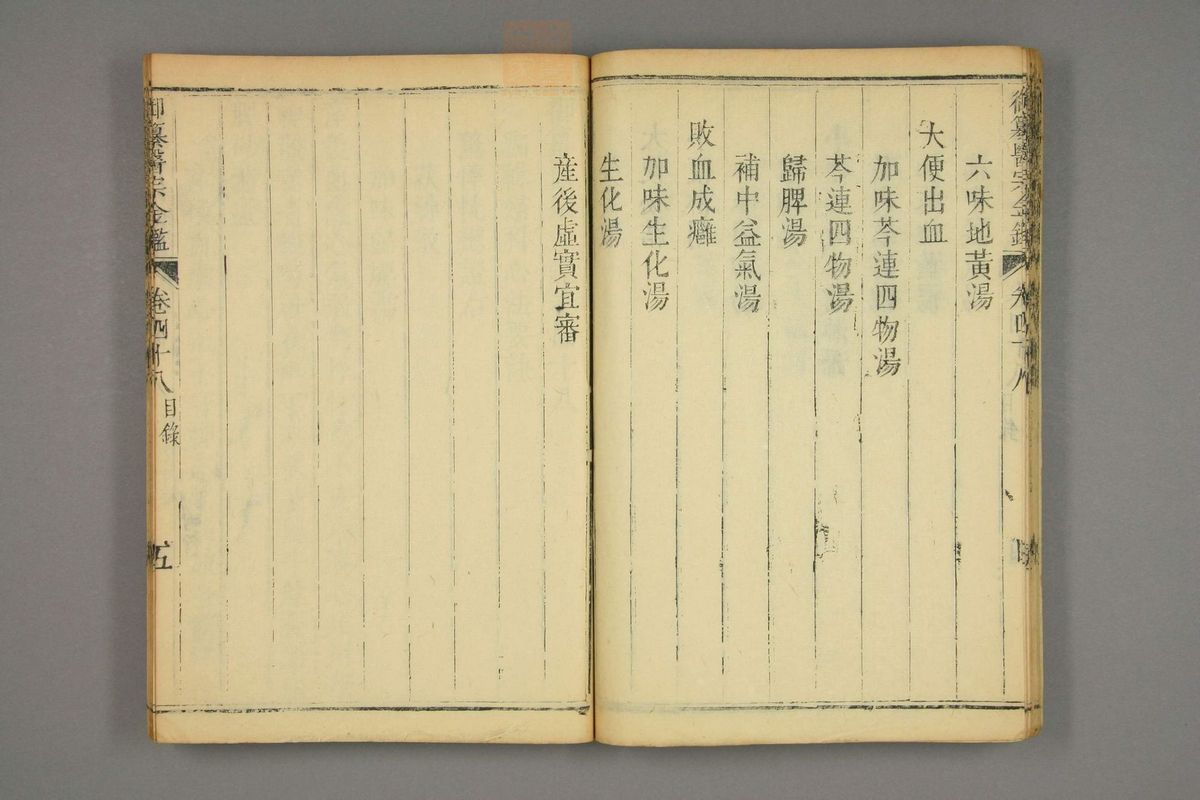 御纂醫宗金鑑
六味地黃湯
大便出血
加味芩連四物湯
芩連四物湯
歸脾湯
補中益氣湯
敗血成癰
加味生化湯
生化湯
産後虛實宜審
御纂醫宗金鑑
卷四十八
目錄
五